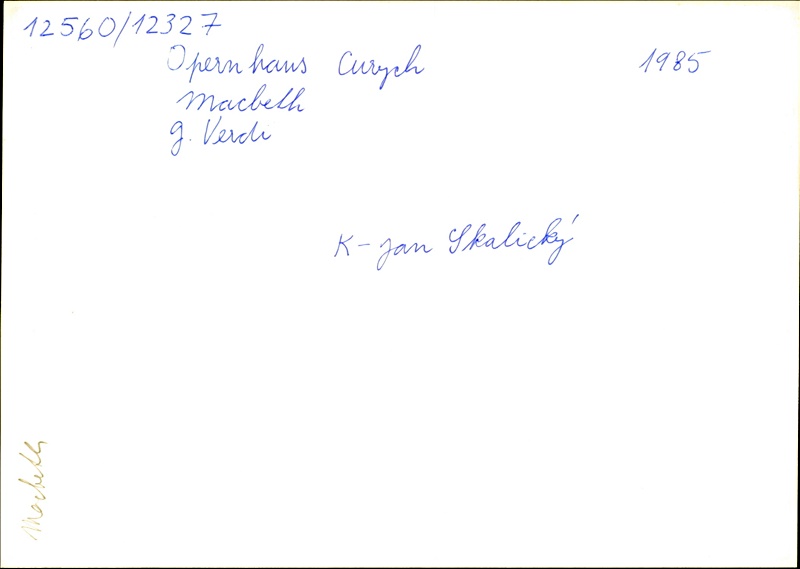 12560/12327
Opernhaus Curych 1985
Macbeth
G. Verdi
K - Jan Skalický
Macbeth